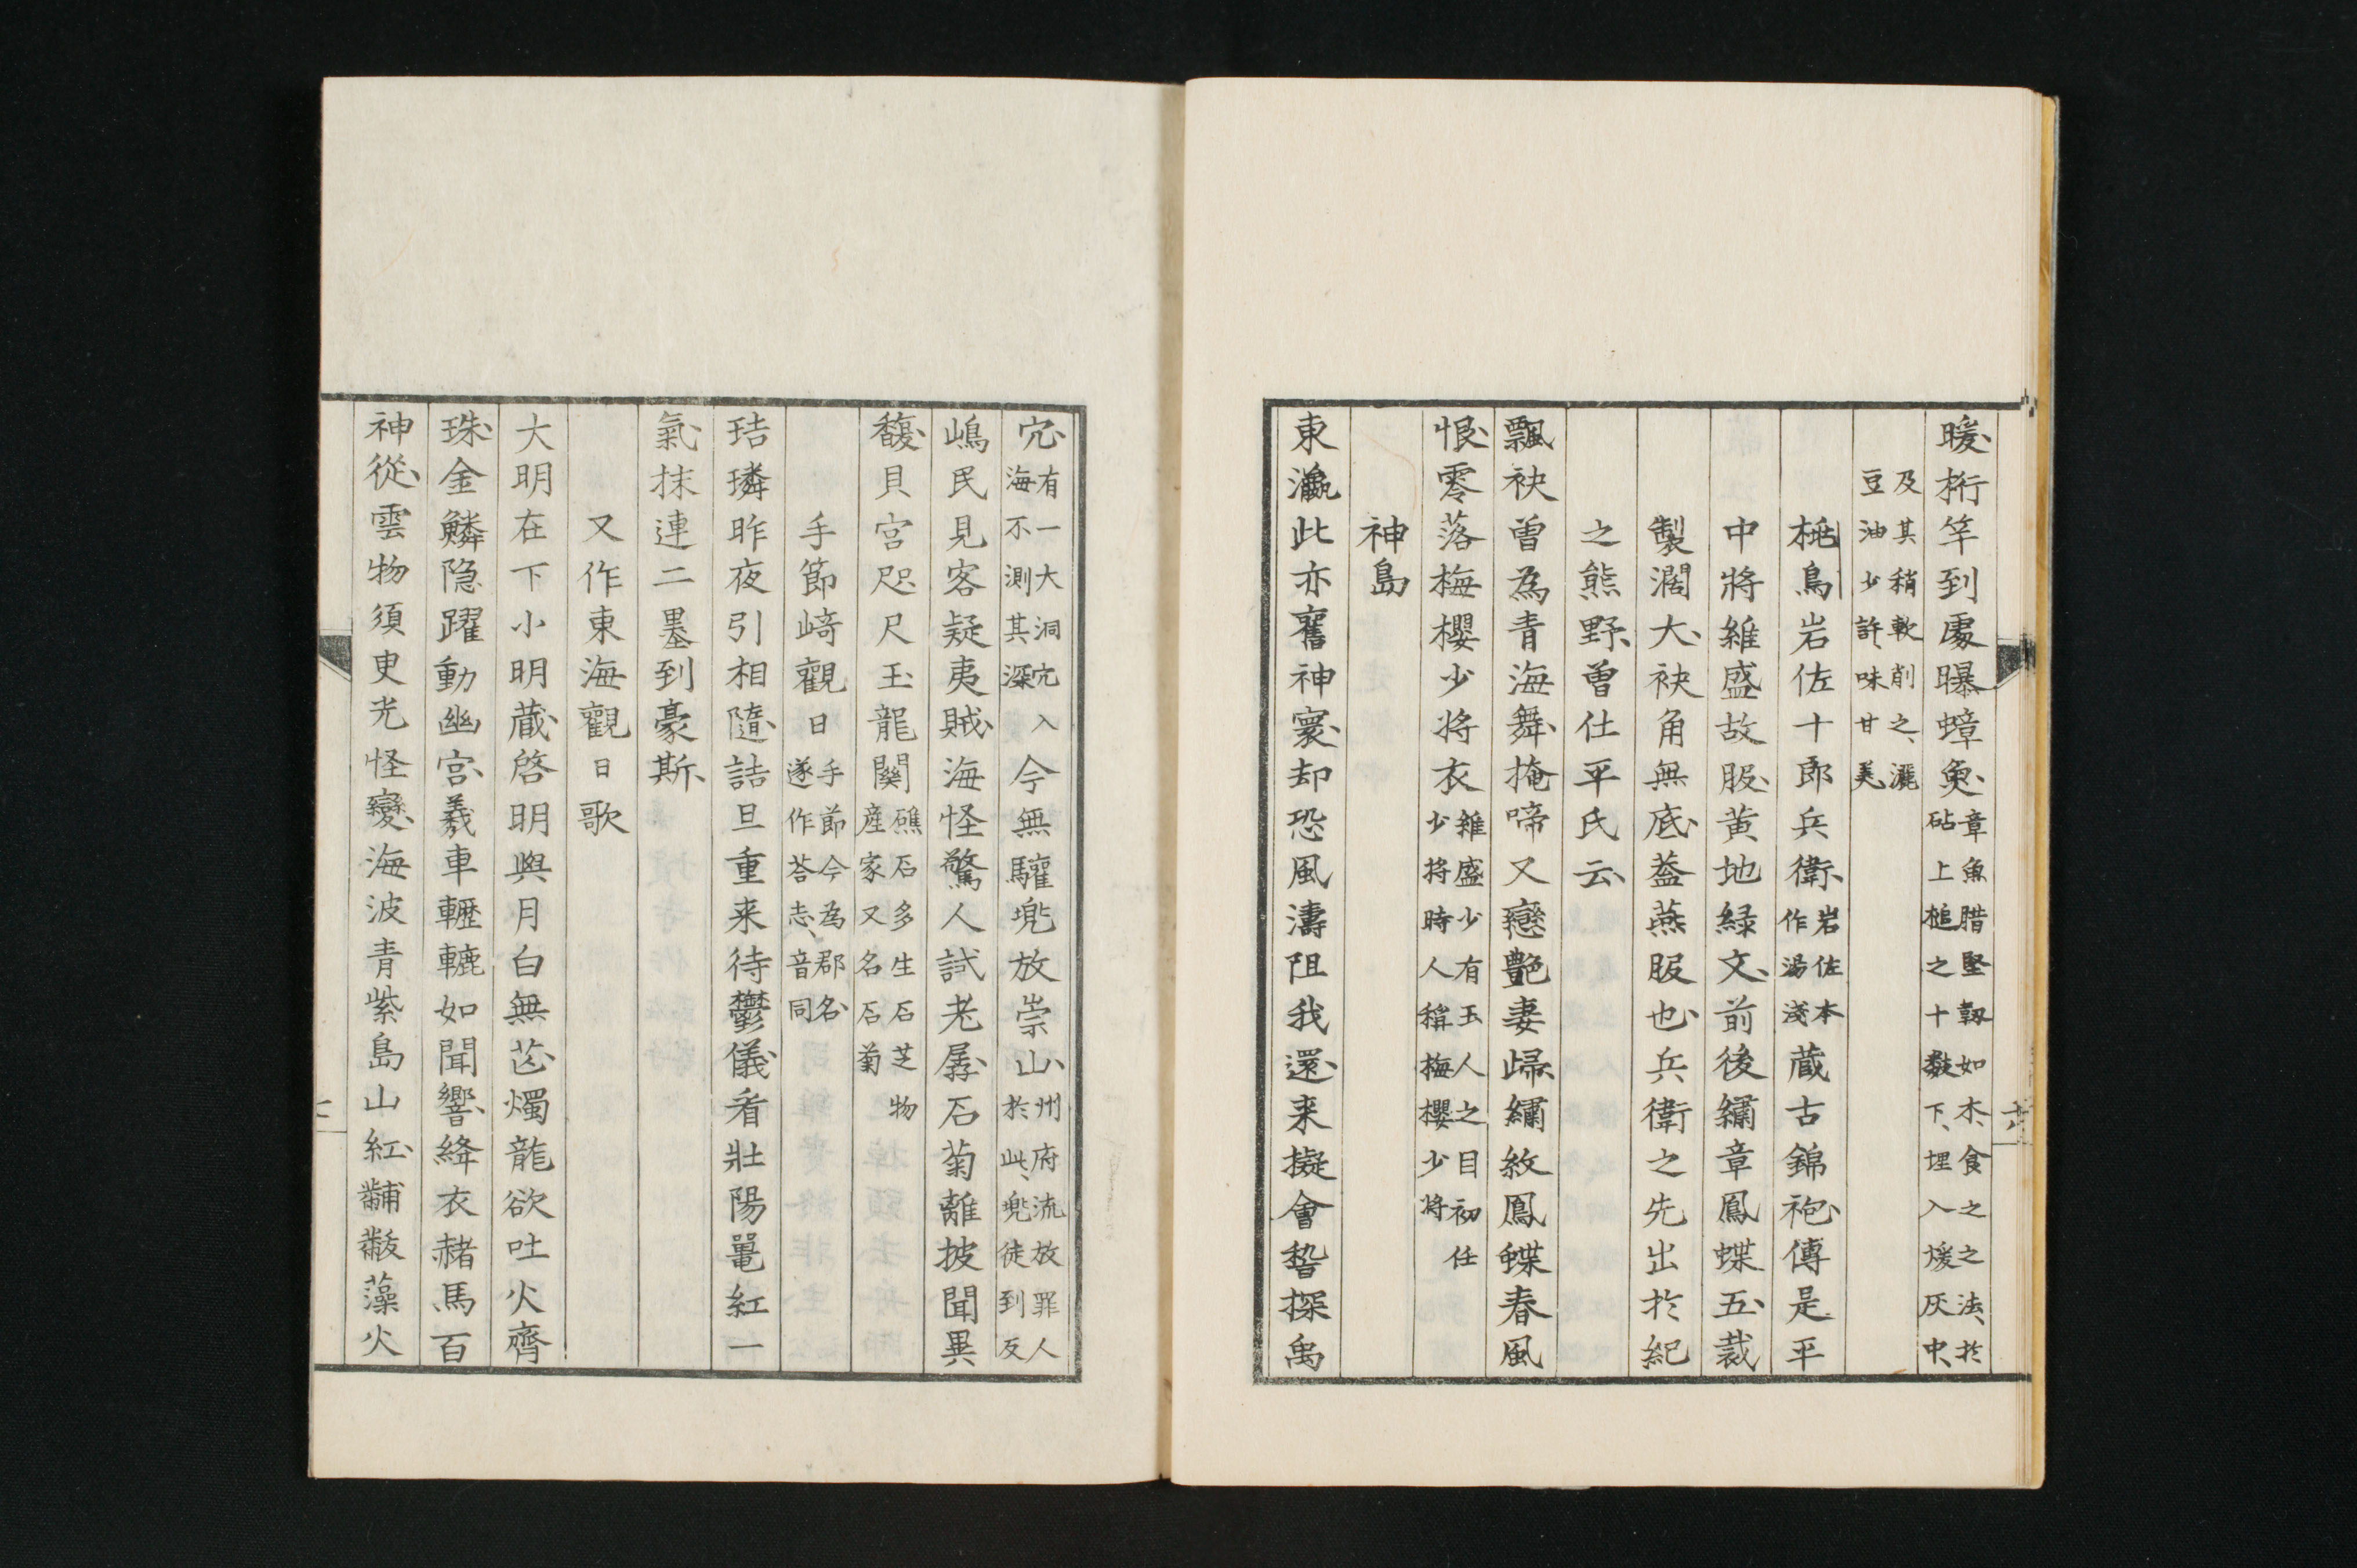 暖、桁竿到處曝蟑魚、章魚腊堅靱如木、食之之法、於砧上槌之十數下、埋入煖灰中、
及其稍軟削之、灑豆油少許、味甘美
桃鳥岩佐十郎兵衛、岩佐本作湯淺蔵古錦袍、傳是平
中將維盛故服、黄地緑文、前後繡章鳳蝶五、裁
製濶大、袂角無底、蓋燕服也、兵衛之先出於紀
之熊野、曽仕平氏云、
飄袂曽為青海舞、掩啼又戀艶妻歸、繡紋鳳蝶春風
恨、零落梅櫻少將衣維盛少有玉人之目初任少將時人稱梅櫻少將
神島
東瀛此亦舊神寰、却恐風濤阻我還、来擬會嵆探禹
穴、有一大洞穴入海不測其深今無驩兠放崇山、州府流放罪人於此、兠徒到反
嶋民見客疑夷賊、海怪驚人試老孱、石菊離披聞異
馥、貝宮咫尺玉龍關礁石多生石芝物産家又名石菊
手節﨑觀日手節今為郡名、遂作荅志、音同
琣璘昨夜引相隨、詰旦重来待鬱儀、看壯陽鼂紅一
氣、抹連二墨到豪斯、
又作東海觀日歌
大明在下小明蔵、啓明與月白無芒、燭龍欲吐火齊
珠、金鱗隐躍動幽宮、羲車轣轆如聞響、絳衣赭馬百
神從、雲物須叟光怪變、海波青紫島山紅、黼黻藻火